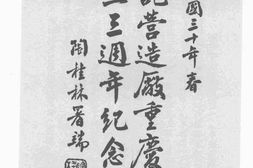 國三十年春
記營造廠重慶
立三週年紀念
陶桂林署端